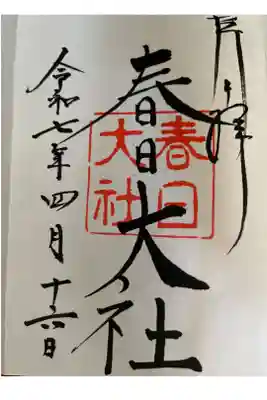 奉拝
春日大社
春日
大社
令和七年四月十六日